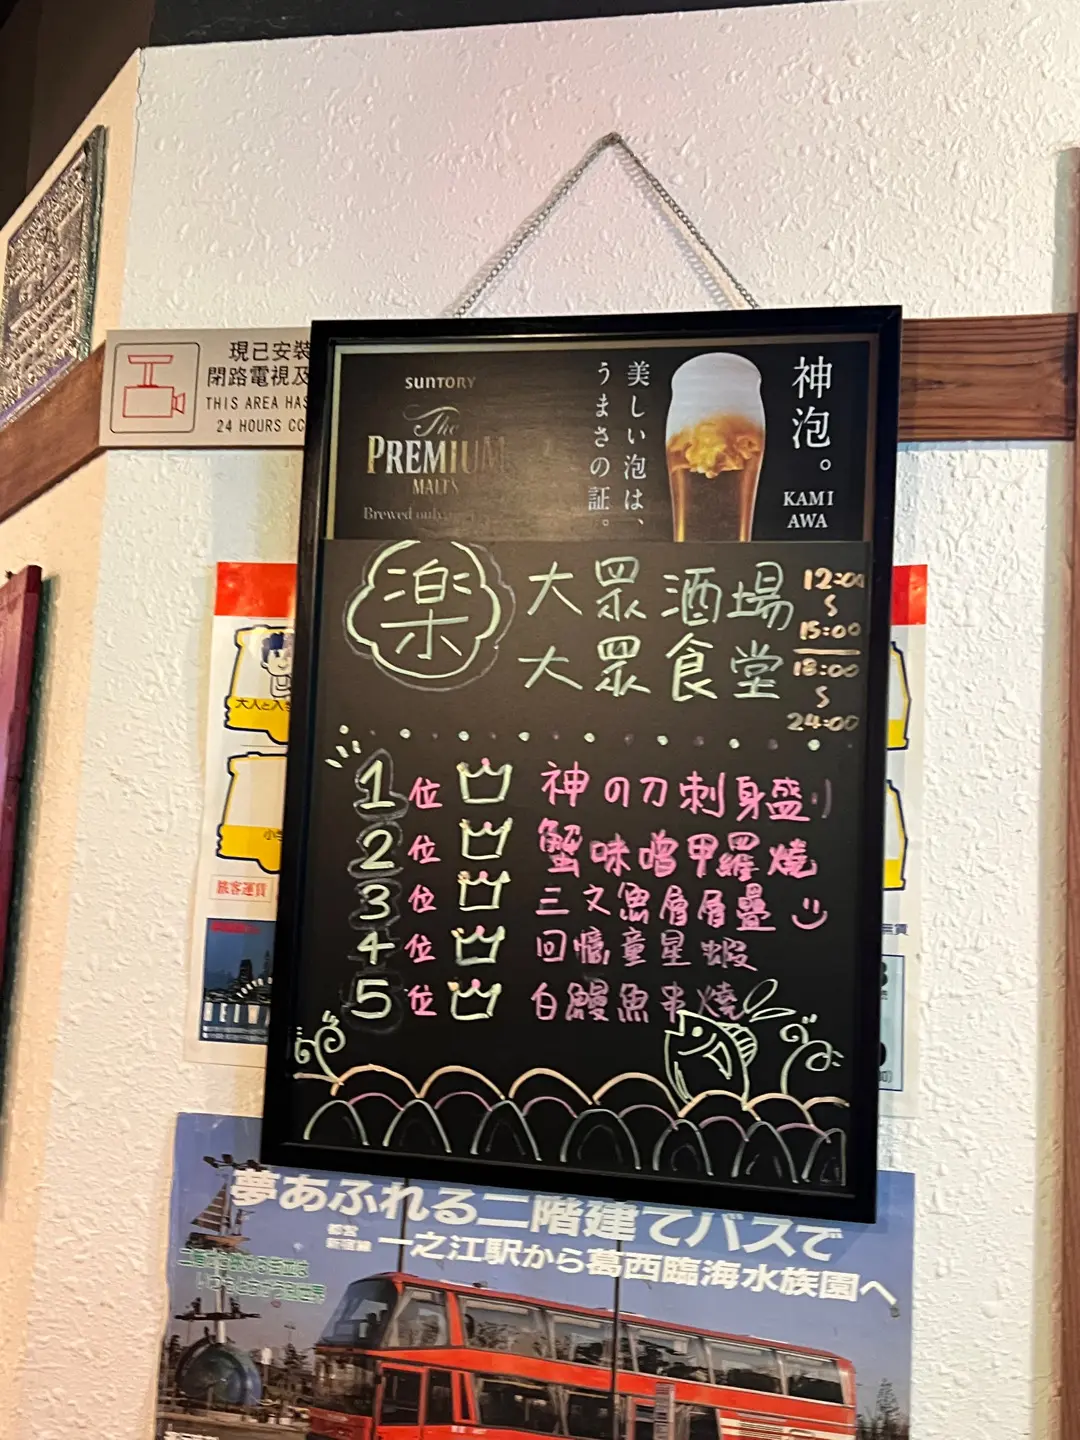 現已安裝
閉路電視及
THIS AREA HAS
24 HOURS CC
SUNTORY
The
PREMIUM
MALT'S
Brewed only
美しい泡は、
うまさの証。
神泡。
KAMI
AWA
楽
大眾酒場
大眾食堂
12:00
～
15:00
18:00
～
24:00
1位 神の刀刺身盛り
2位 蟹味噌甲羅燒
3位 三文魚層層疊
4位 回憶童星蝦
5位 白鰻魚串燒
大人と入学
小学
旅客運賃
夢あふれる二階建てバスで
都営
新宿線
一之江駅から葛西臨海水族園へ